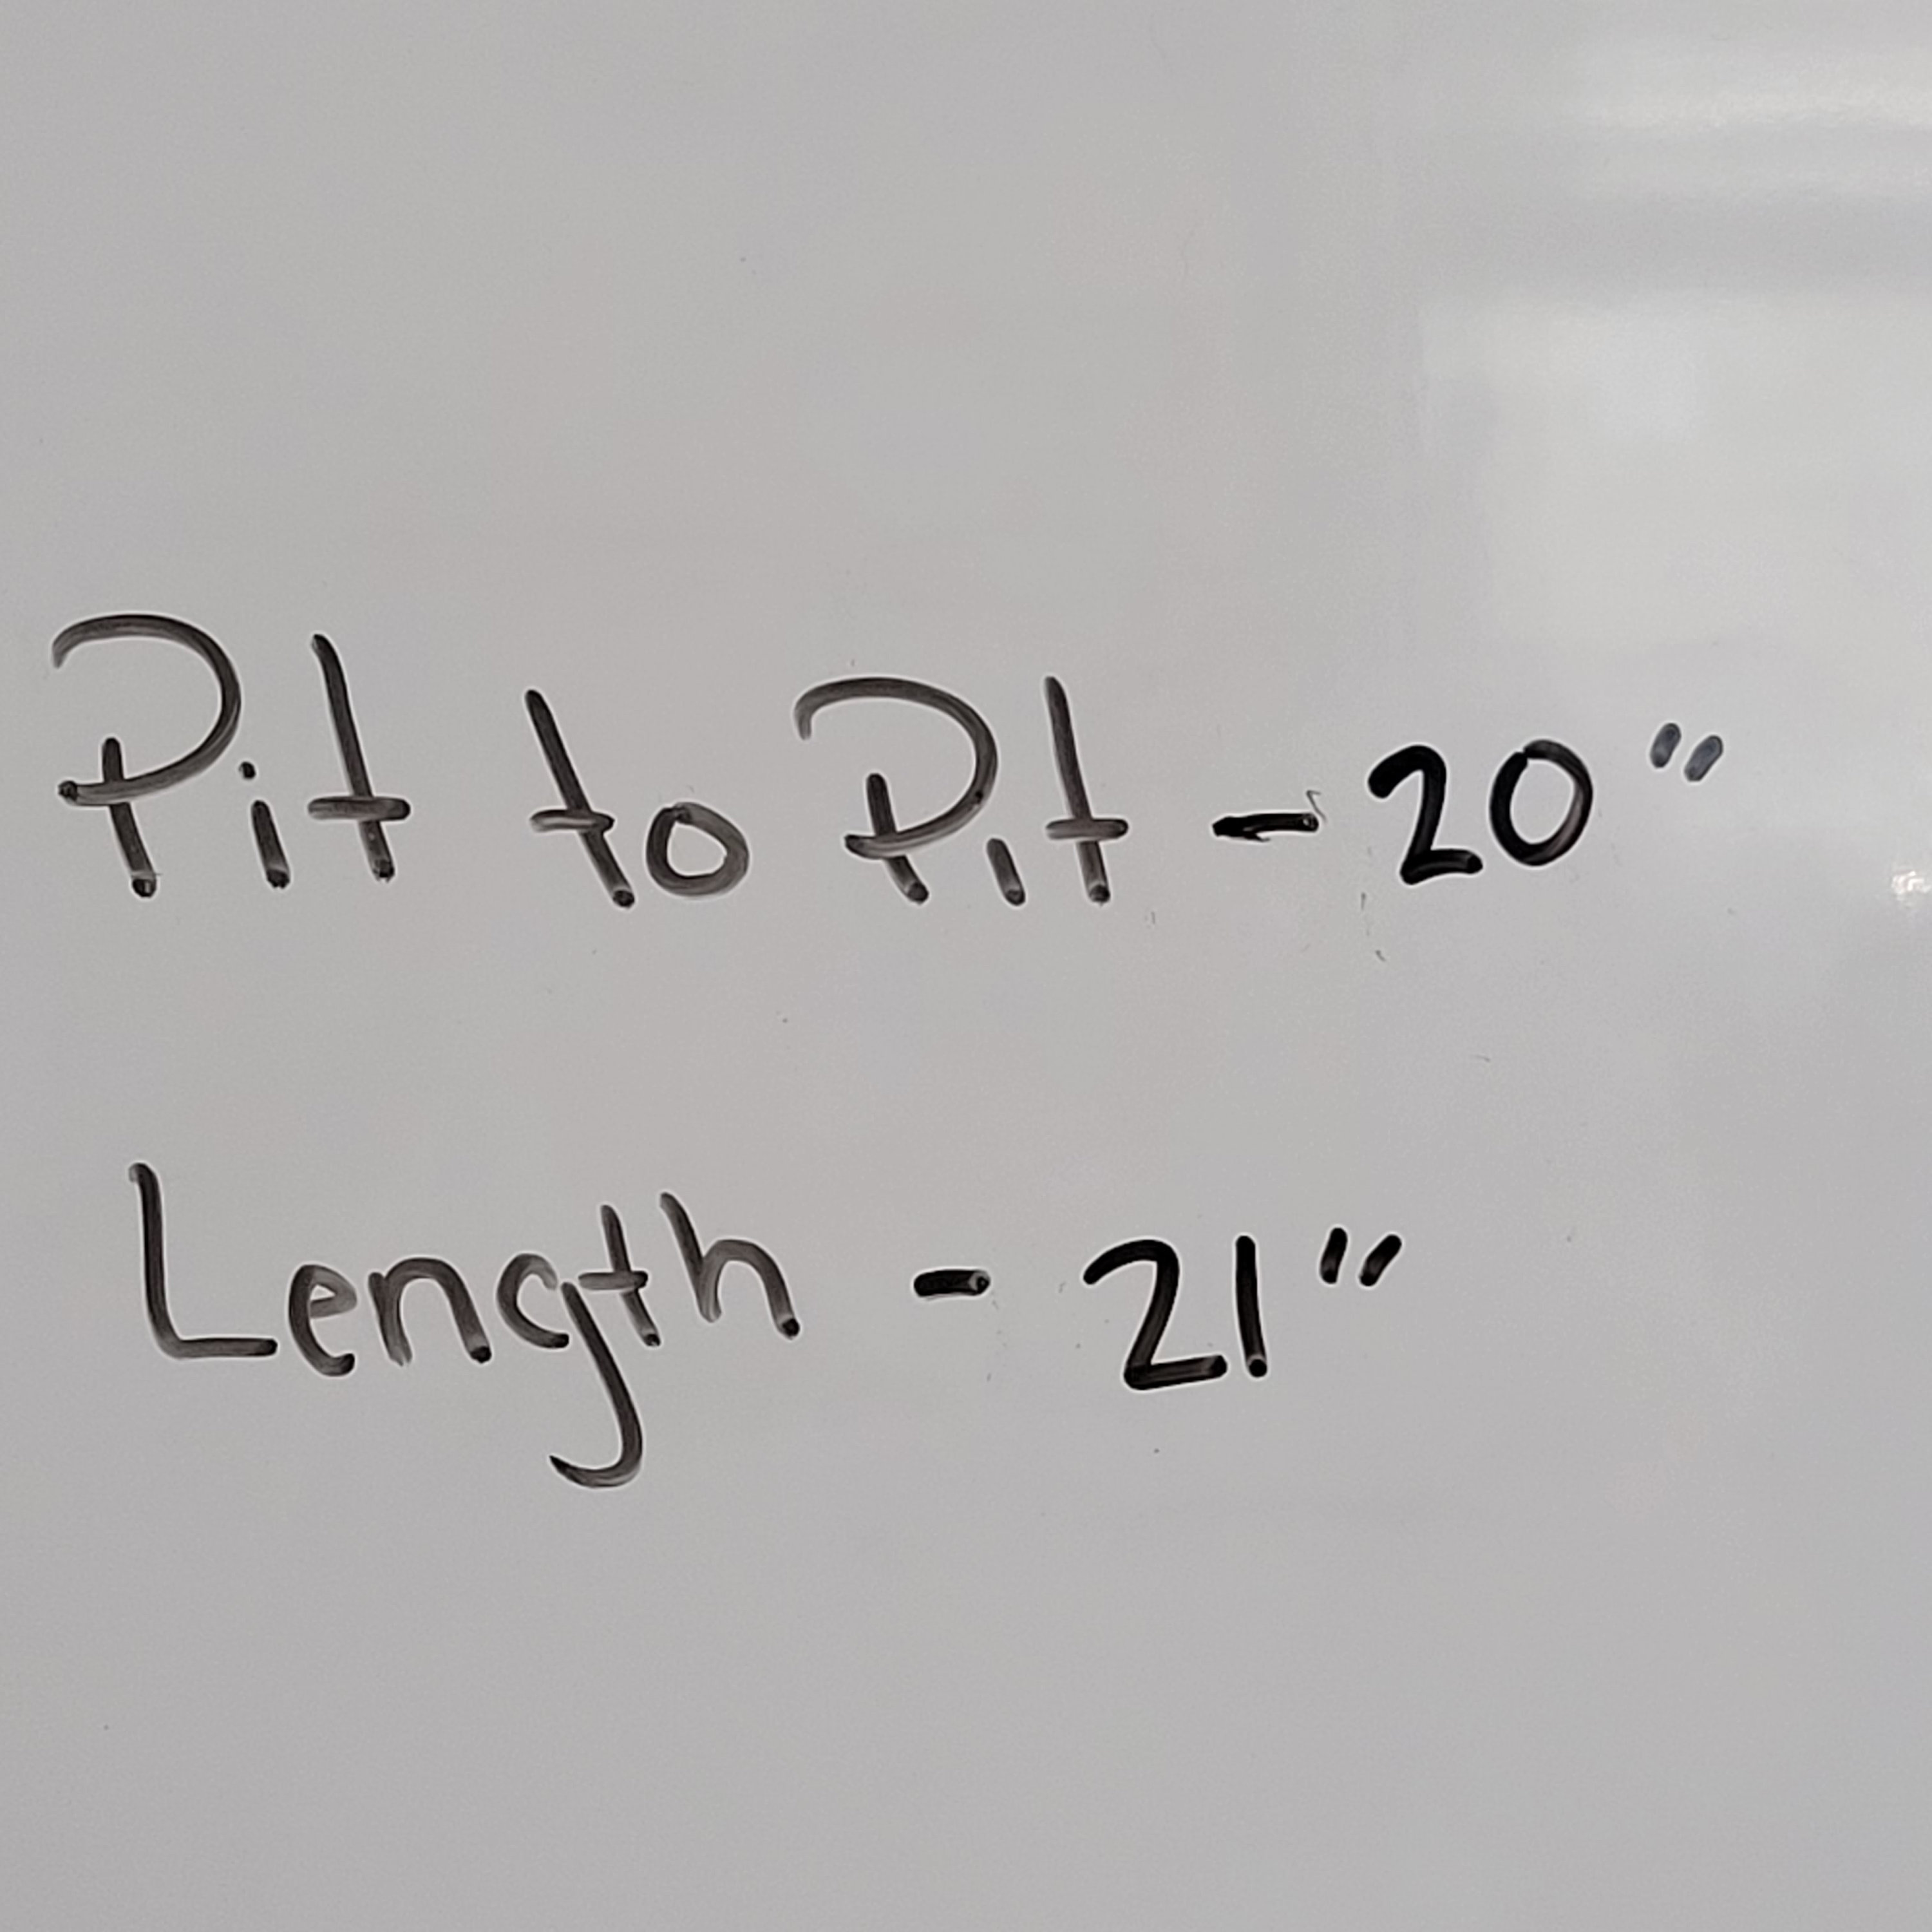 Pit to Pit - 20"
Length - 21"